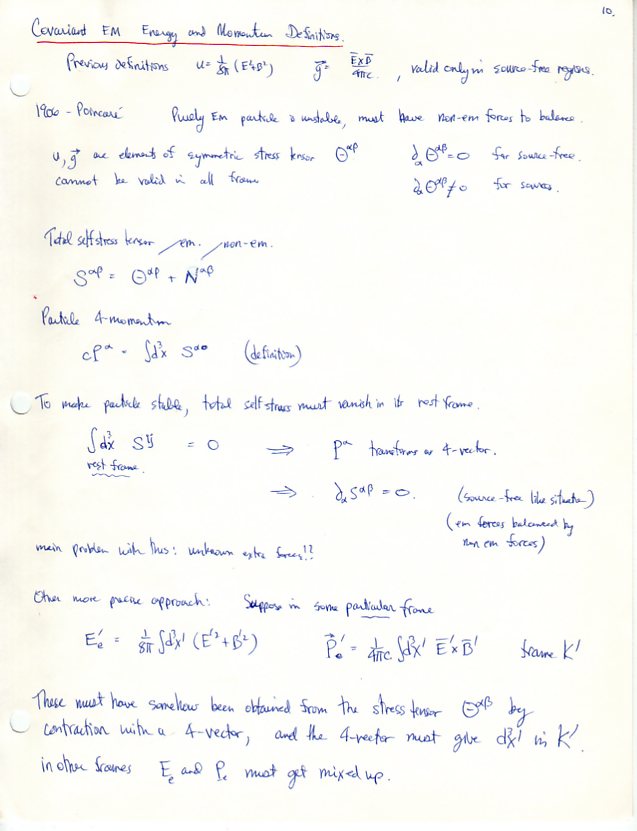 10.
Covariant EM Energy and Momentum Definitions.
Previous definitions u = 1/8π (E²+B²) g⃗ = E̅×B̅/4πc , valid only in source-free regions.
1906 - Poincaré Purely EM particle is unstable, must have non-em forces to balance.
u, g⃗ are elements of symmetric stress tensor Θ^αβ ∂_α Θ^αβ = 0 for source-free.
cannot be valid in all frames ∂_α Θ^αβ ≠ 0 for sources.
Total self stress tensor em. non-em.
S^αβ = Θ^αβ + N^αβ
Particle 4-momentum
cP^α = ∫d³x S^α0 (definition)
To make particle stable, total self stress must vanish in its rest frame.
∫d³x S^ij = 0 ⟹ P^α transforms as 4-vector.
rest frame.
⟹ ∂_α S^αβ = 0. (source-free like situation)
(em forces balanced by
non em forces)
main problem with this: unknown extra forces!?
Other more precise approach: Suppose in some particular frame
E_e' = 1/8π ∫d³x' (E'²+B'²) P⃗_e' = 1/4πc ∫d³x' E̅'×B̅' frame K'
These must have somehow been obtained from the stress tensor Θ^αβ by
contraction with a 4-vector, and the 4-vector must give d³x' in K'.
in other frames E_e and P_e must get mixed up.